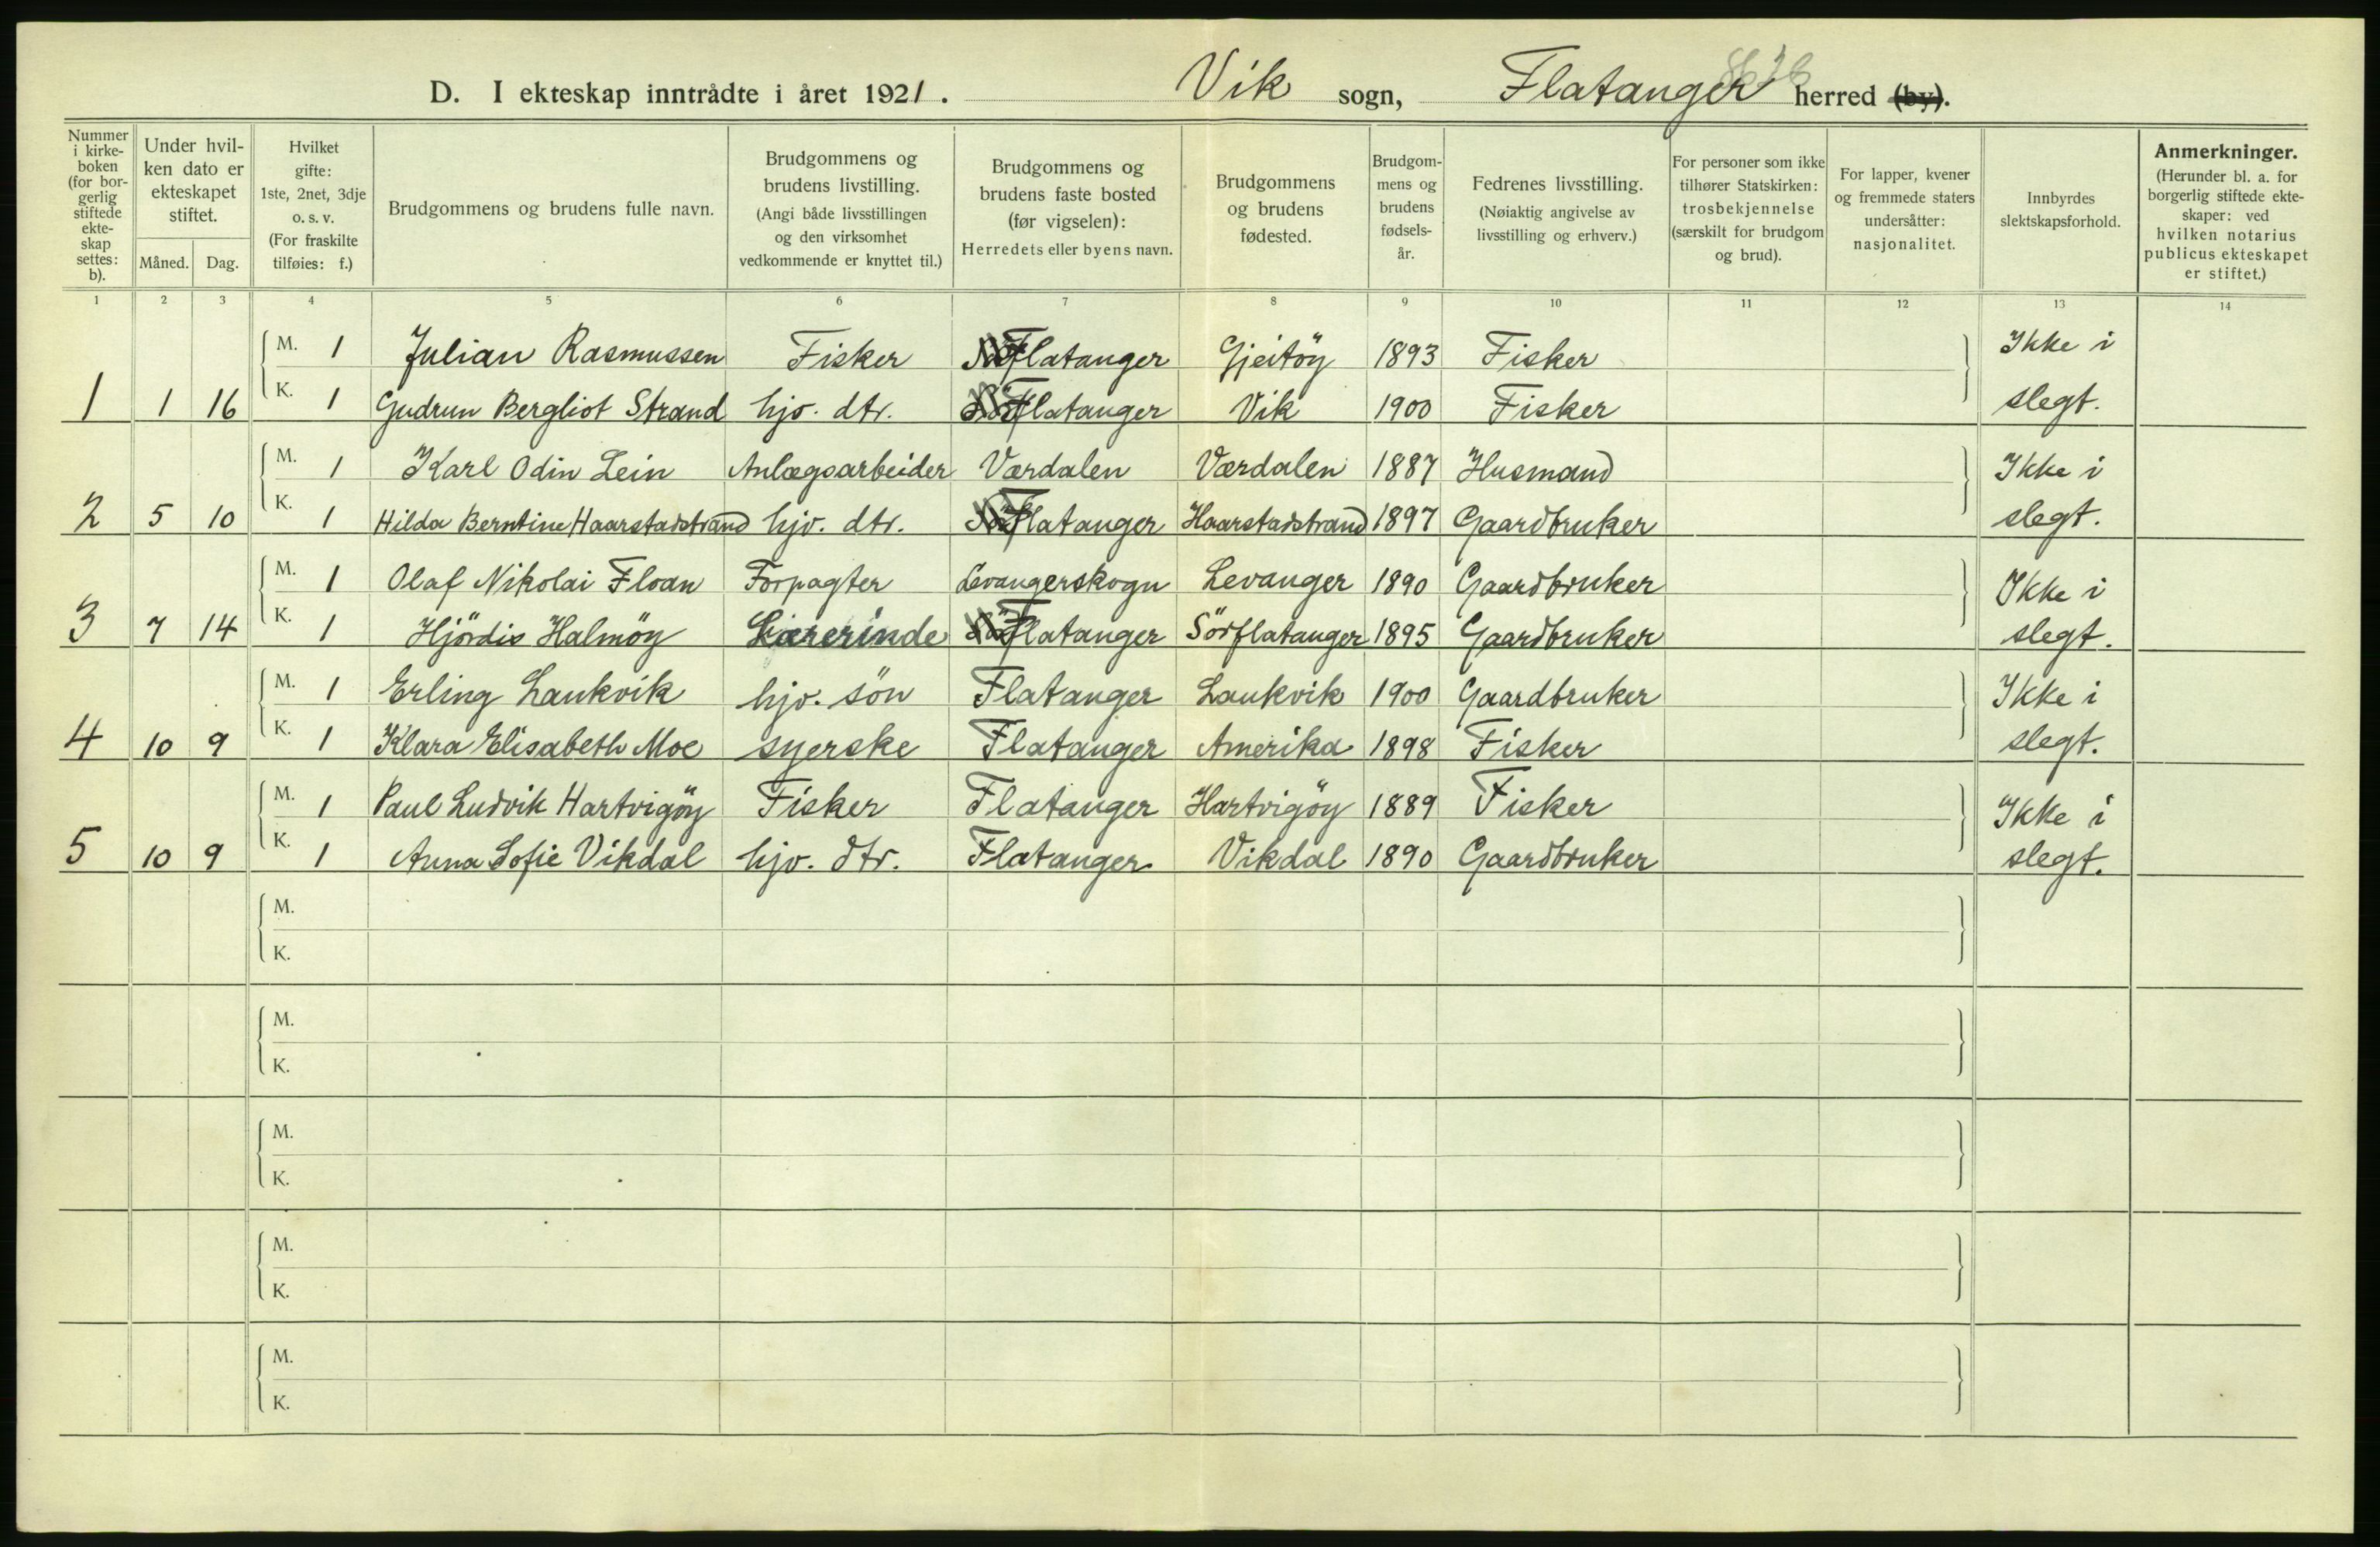 D. I ekteskap inntrådte i året 1921. Vik sogn, Flatanger herred (by).
Nummer i kirke-boken (for bor-gerlig stiftede ekte-skap settes: b).
Under hvil-ken dato er ekteskapet stiftet.
Måned. Dag.
Hvilket gifte: 1ste, 2net, 3dje o. s. v. (For fraskilte tilføies: f.)
Brudgommens og brudens fulle navn.
Brudgommens og brudens livstilling. (Angi både livsstillingen og den virksomhet vedkommende er knyttet til.)
Brudgommens og brudens faste bosted (før vigselen): Herredets eller byens navn.
Brudgommens og brudens fødested.
Brudgom-mens og brudens fødsels-år.
Fedrenes livsstilling. (Nøiaktig angivelse av livsstilling og erhverv.)
For personer som ikke tilhører Statskirken: trosbekjennelse (særskilt for brudgom og brud).
For lapper, kvener og fremmede staters undersåtter: nasjonalitet.
Innbyrdes slektskapsforhold.
Anmerkninger. (Herunder bl. a. for borgerlig stiftede ekte-skaper: ved hvilken notarius publicus ekteskapet er stiftet.)
1 2 3 4 5 6 7 8 9 10 11 12 13 14
M. 1 Julian Rasmussen Fisker Flatanger Gjeitöy 1893 Fisker Ikke i
1 1 16 K. 1 Gudrun Bergliot Strand hjv. dtr. Flatanger Vik 1900 Fisker slegt.
M. 1 Karl Odin Lein Anlægsarbeider Værdalen Værdalen 1887 Husmand Ikke i
2 5 10 K. 1 Hilda Berntine Haarstadstrand hjv. dtr. Flatanger Haarstadstrand 1897 Gaardbruker slegt.
M. 1 Olaf Nikolai Floan Forpagter Levangerskogn Levanger 1890 Gaardbruker Ikke i
3 7 14 K. 1 Hjördis Halmöy Lærerinde Flatanger Sörflatanger 1895 Gaardbruker slegt.
M. 1 Erling Laukvik hjv. sön Flatanger Laukvik 1900 Gaardbruker Ikke i
4 10 9 K. 1 Klara Elisabeth Moe syerske Flatanger Amerika 1898 Fisker slegt.
M. 1 Paul Ludvik Hartvigöy Fisker Flatanger Hartvigöy 1889 Fisker Ikke i
5 10 9 K. 1 Anna Sofie Vikdal hjv. dtr. Flatanger Vikdal 1890 Gaardbruker slegt.
M.
K.
M.
K.
M.
K.
M.
K.
M.
K.